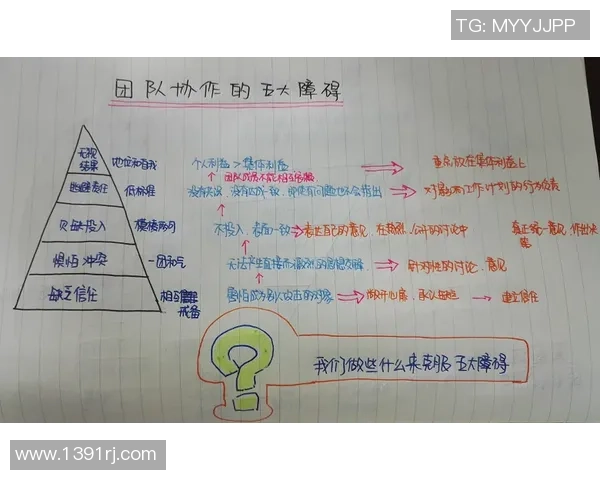 TG: MYYJJPP
团队协作的五大障碍
无视
结果
地位和自我
个人利益 > 集体利益
重点放在集体利益上
团队成员不能相互
逃避责任
低标准
没有达成一致，即使有问题也不会指出
对影响工作计划的行为负责
欠缺投入
模棱两可
不投入，表面一致
表达自己的意见，在激烈、公开的讨论中
真正统一意见，作出决策
惧怕冲突
一团和气
无法产生直接而激烈的思想交锋
针对性的讨论、意见
缺乏信任
相互
戒备
害怕成为别人攻击的对象
敞开心扉，承认
建立信任
?
我们做些什么来克服五大障碍
www.1391rj.com